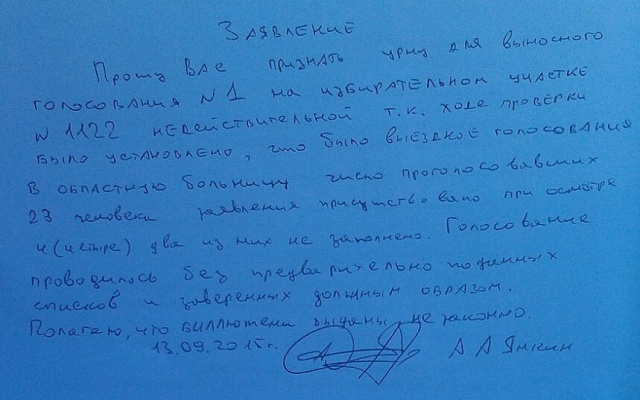 Заявление
Прошу Вас признать урну для выносного
голосования N1 на избирательном участке
N 1122 недействительной т.к. ходе проверки
было установлено, что было выездное голосования
в областную больницу число проголосовавших
23 человека заявления присутствовало при осмотре
4 (четыре) два из них не заполнено. Голосование
проводилось без предварительно поданных
списков и заверенных должным образом.
Полагаю, что биллютени выданы не законно.
13.09.2015г. А А Янкин